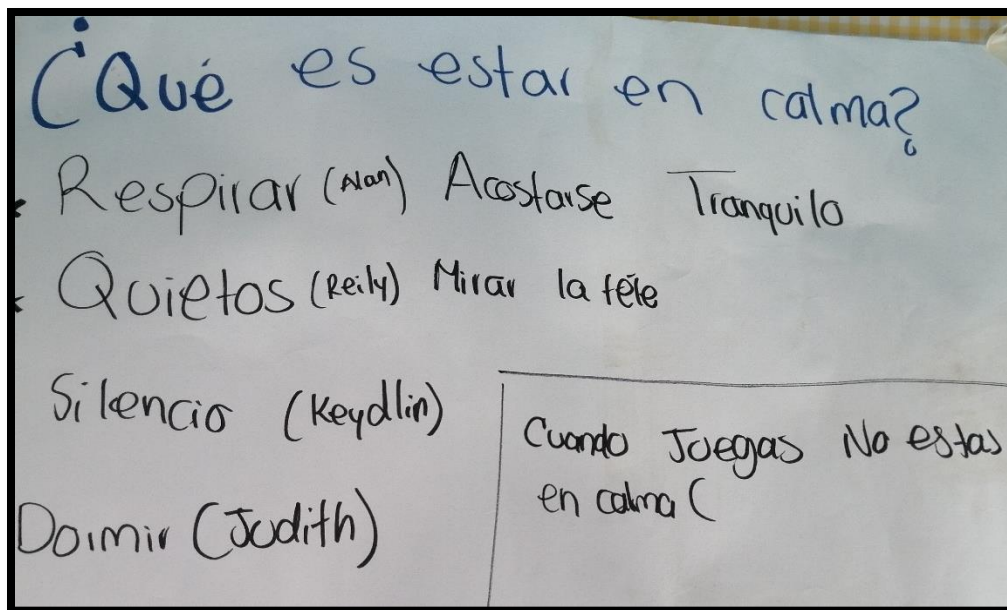 ¿Qué es estar en calma?
Respirar (Alan) Acostarse Tranquilo
Quietos (Reily) Mirar la tele
Silencio (Keydlin)
Dormir (Judith)
Cuando Juegas No estas
en calma (